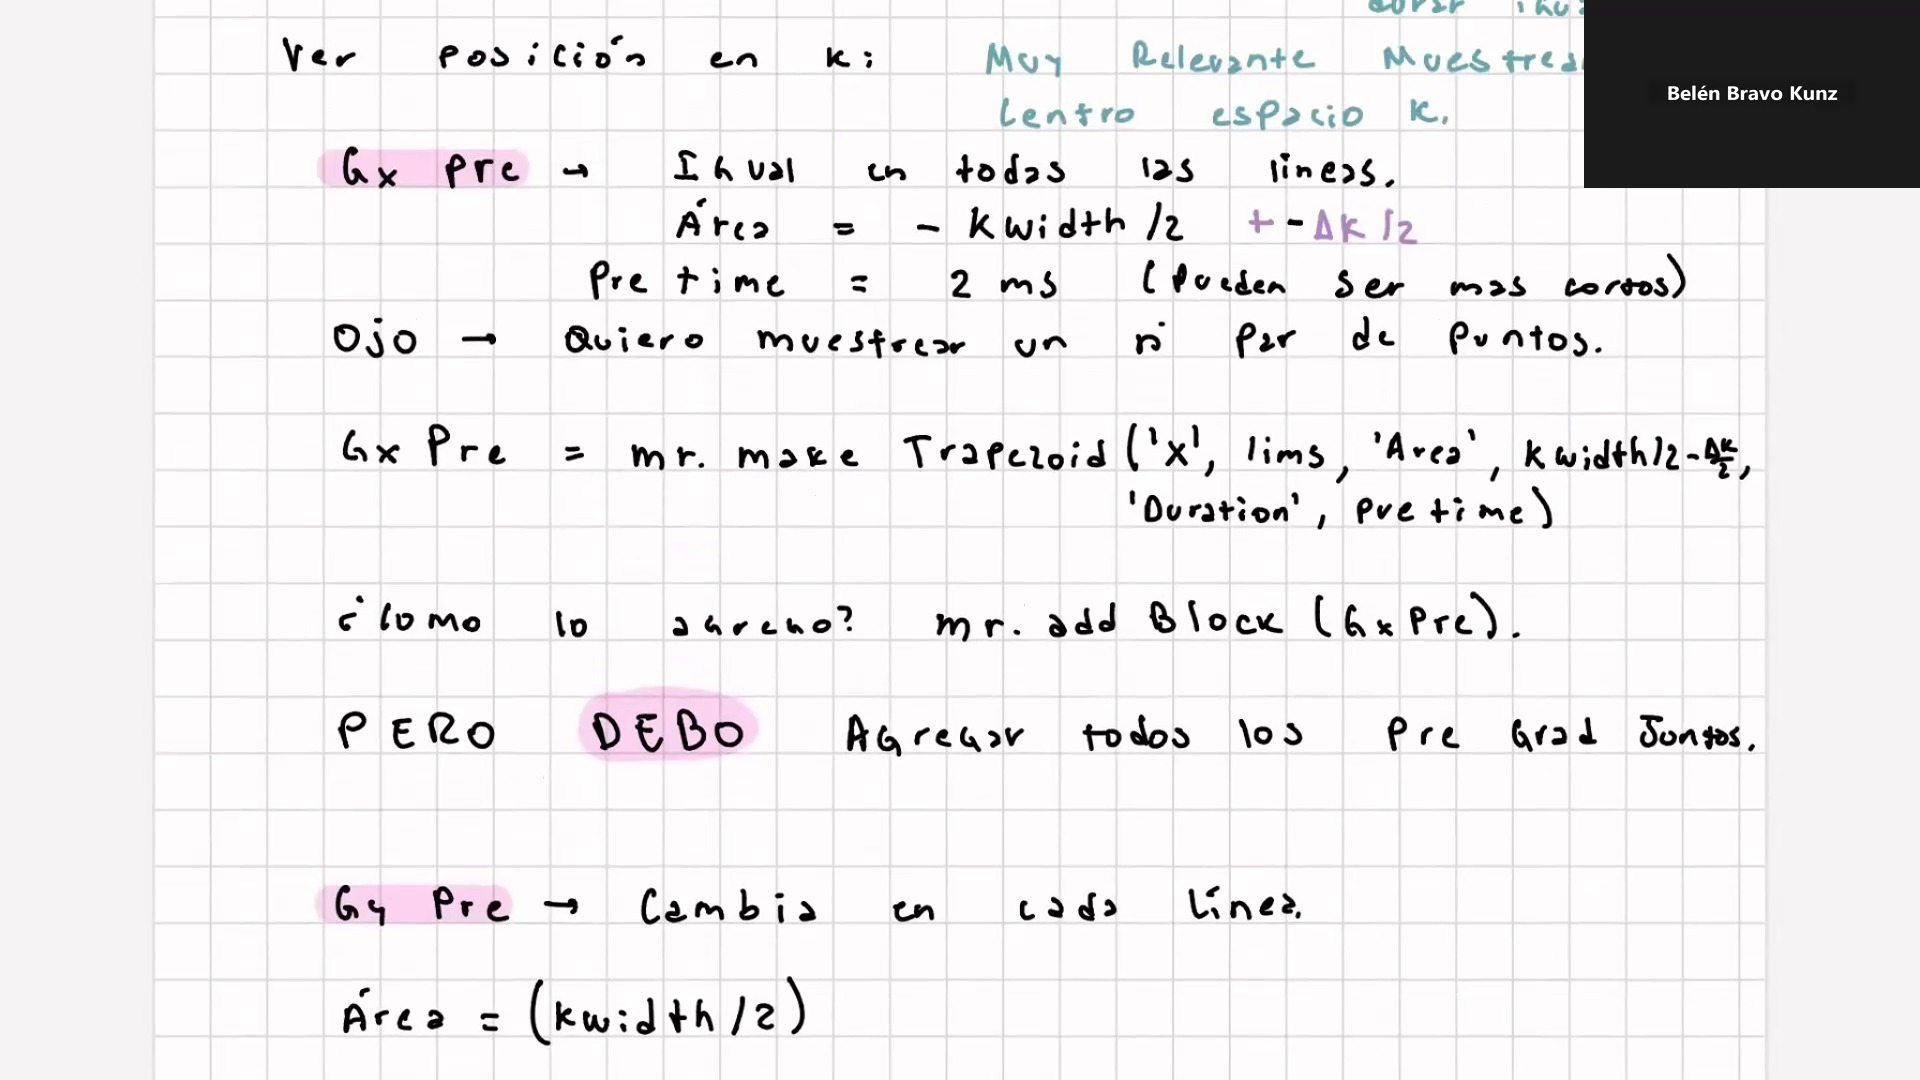 Ver posición en k: Muy Relevante
Centro espacio k.
Belén Bravo Kunz
Gx Pre → Igual en todas las lineas.
Área = - Kwidth/2 + - ΔK/2
Pre time = 2 ms (Pueden ser mas cortos)
Ojo → Quiero muestrear un n° par de puntos.
Gx Pre = mr. make Trapezoid ('x', lims, 'Area', kwidth/2 - Δk/2,
'Duration', pretime)
¿Como lo agrego? mr. add Block (Gx Pre).
PERO DEBO Agregar todos los Pre Grad Juntos.
Gy Pre → Cambia en cada línea.
Área = (kwidth/2)